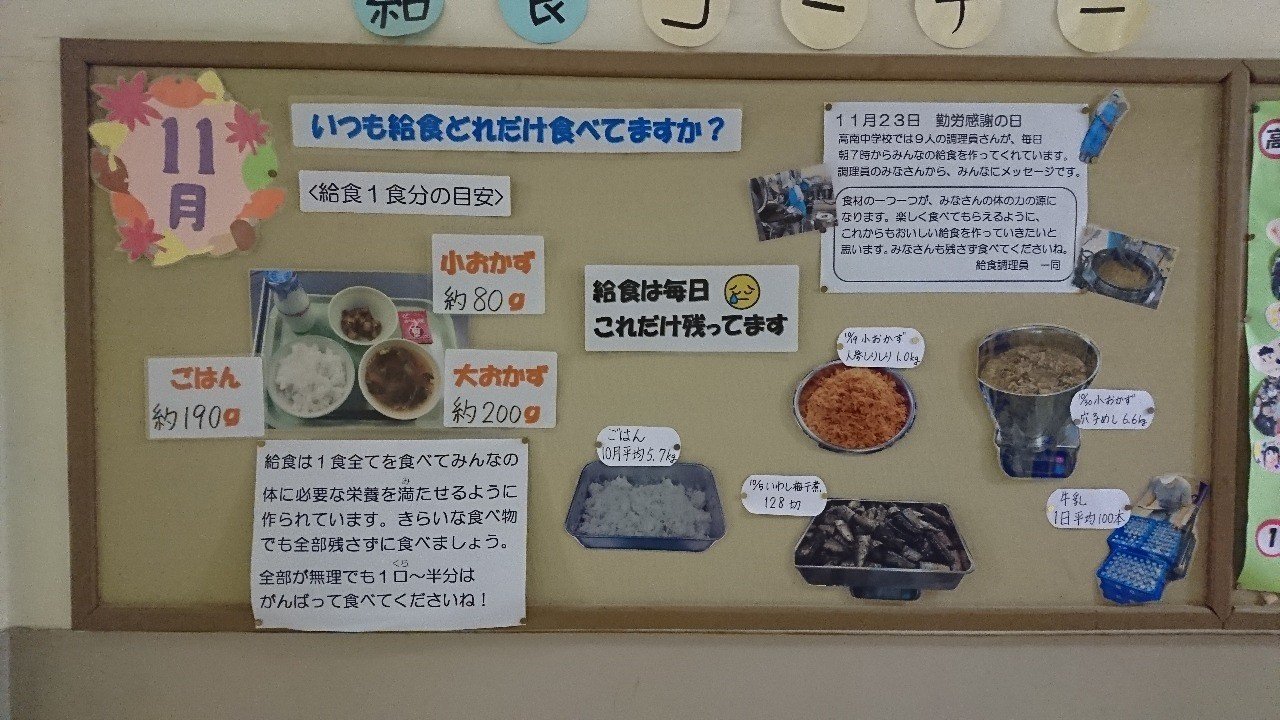 給食コーナー
11
月
いつも給食どれだけ食べてますか？
<給食１食分の目安>
小おかず
約80g
ごはん
約190g
大おかず
約200g
給食は１食全てを食べてみんなの
体に必要な栄養を満たせるように
作られています。きらいな食べ物
でも全部残さずに食べましょう。
全部が無理でも１口～半分は
がんばって食べてくださいね！
給食は毎日
これだけ残ってます
１１月２３日　勤労感謝の日
高南中学校では９人の調理員さんが、毎日
朝７時からみんなの給食を作ってくれています。
調理員のみなさんから、みんなにメッセージです。
食材の一つ一つが、みなさんの体の力の源に
なります。楽しく食べてもらえるように、
これからもおいしい給食を作っていきたいと
思います。みなさんも残さず食べてくださいね。
給食調理員　一同
小おかず
人参しりしり 1.0kg
小おかず
6.6kg
ごはん
10月平均5.7kg
いわし梅干煮
128切
牛乳
1日平均100本